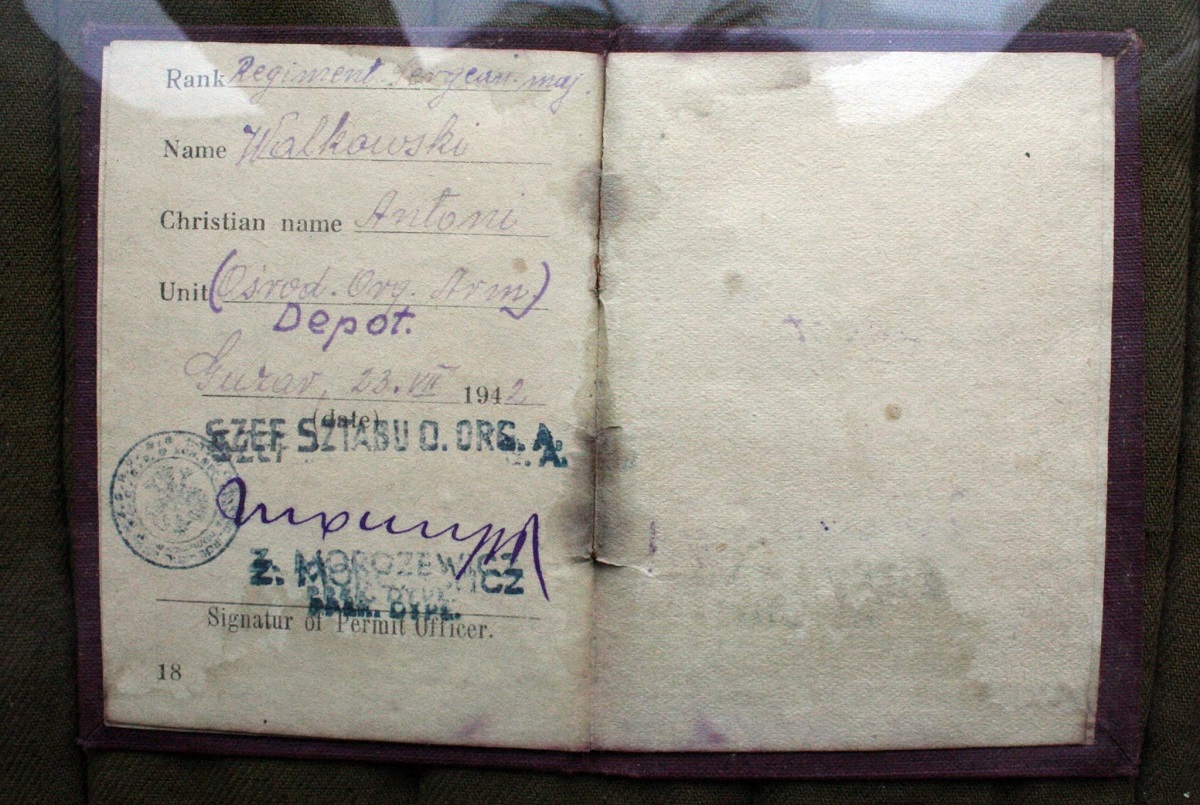 Rank Regiment serjean-maj.
Name Walkowski
Christian name Antoni
Unit (Ośrod. Org. Arm)
Depot.
Guzar, 23.VII 1942
(date)
SZEF SZTABU O. ORG. A.
Z. MOROZEWICZ
DYPL.
Signatur of Permit Officer.
18